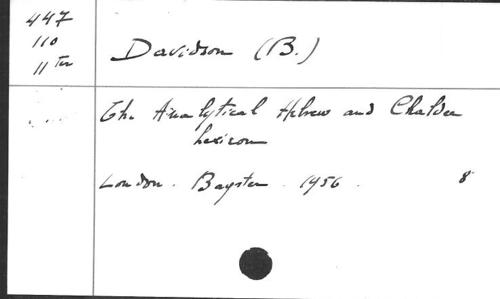 447
110
11 Ter
Davidson (B.)
The Analytical Hebrew and Chaldee
Lexicon
London. Bagster. 1956. 8°